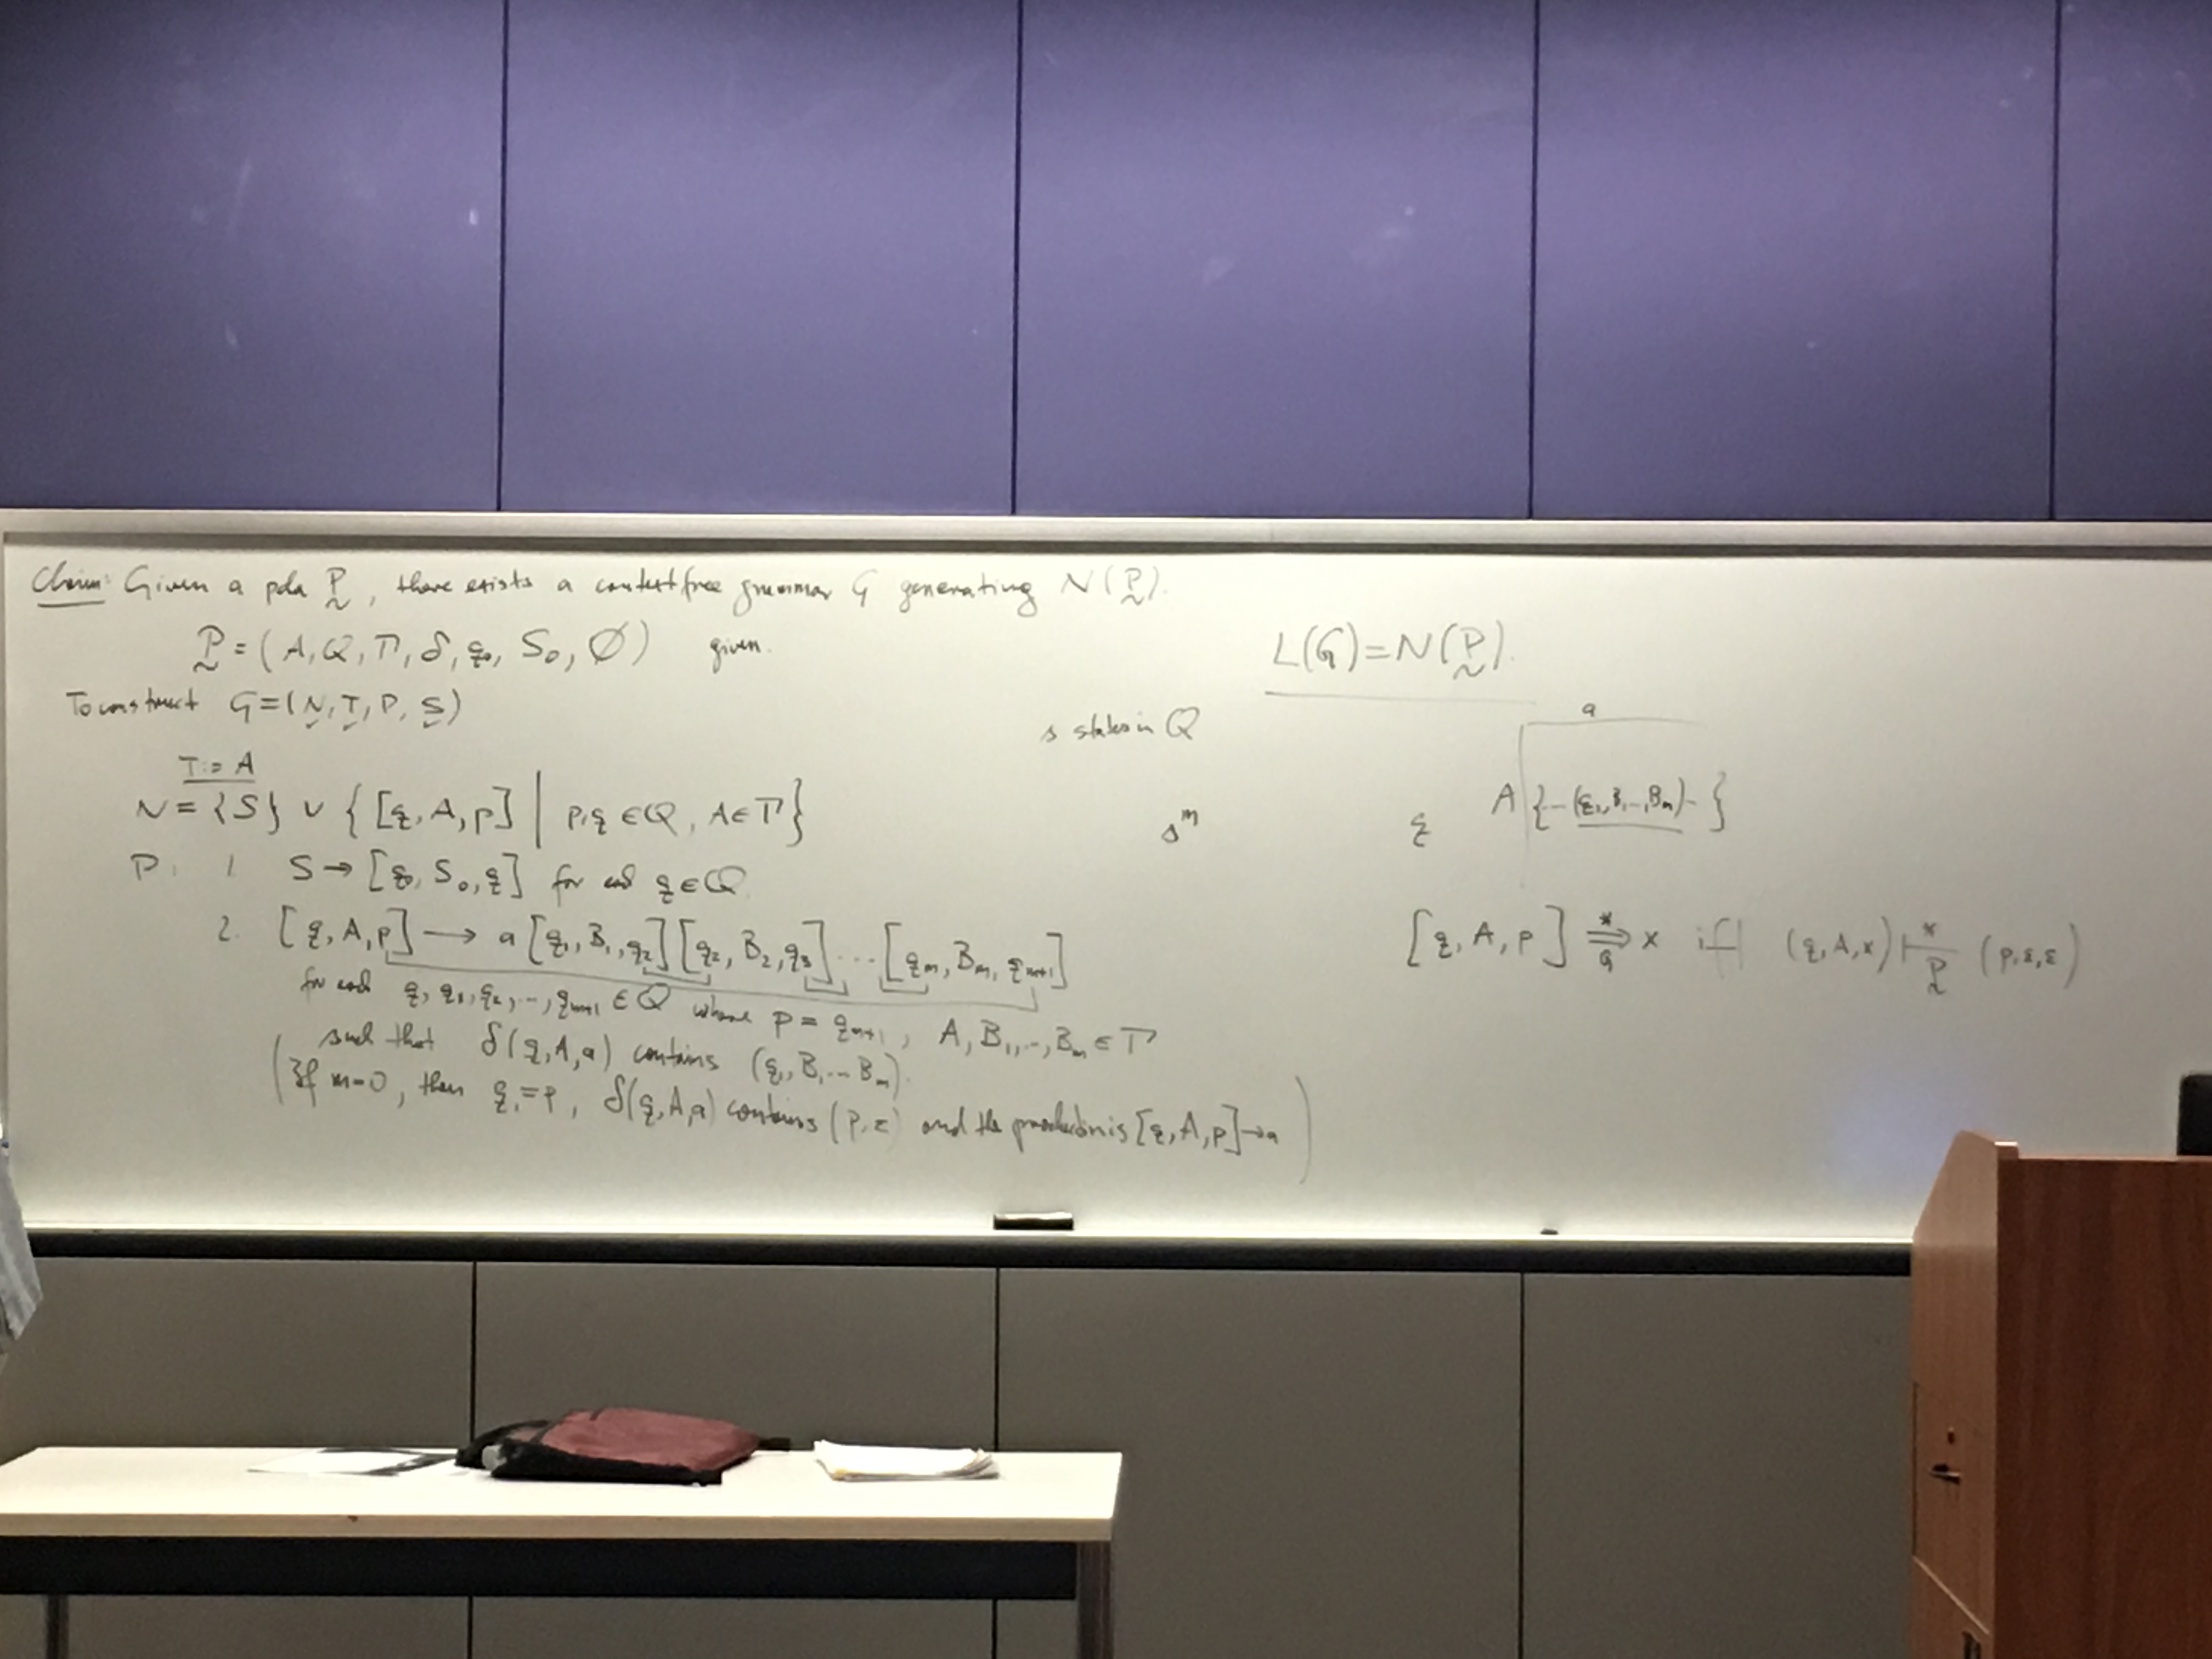 Claim: Given a pda P̰, there exists a contextfree grammar G generating N(P̰).
P̰ = (A, Q, Γ, δ, q₀, S₀, ∅) given.
To construct G = (N, T, P, S)
T := A
N = {S} ∪ {[q, A, p] | p,q ∈ Q, A ∈ Γ}
P: 1 S → [q₀, S₀, q] for each q ∈ Q
2. [q, A, p] → a [q₁, B₁, q₂][q₂, B₂, q₃] ··· [qₘ, Bₘ, qₘ₊₁]
for each q, q₁, q₂, .., qₘ₊₁ ∈ Q where p = qₘ₊₁, A, B₁, .., Bₘ ∈ Γ
such that δ(q, A, a) contains (q₁, B₁ ... Bₘ).
(If m=0, then q₁ = p, δ(q, A, a) contains (p, ε) and the production is [q, A, p] → a)
s states in Q
sᵐ
L(G) = N(P̰).
a
q A {-- (q₁, B₁ .., Bₘ) - }
[q, A, p] ⇒*G x iff (q, A, x) ⊢*P̰ (p, ε, ε)